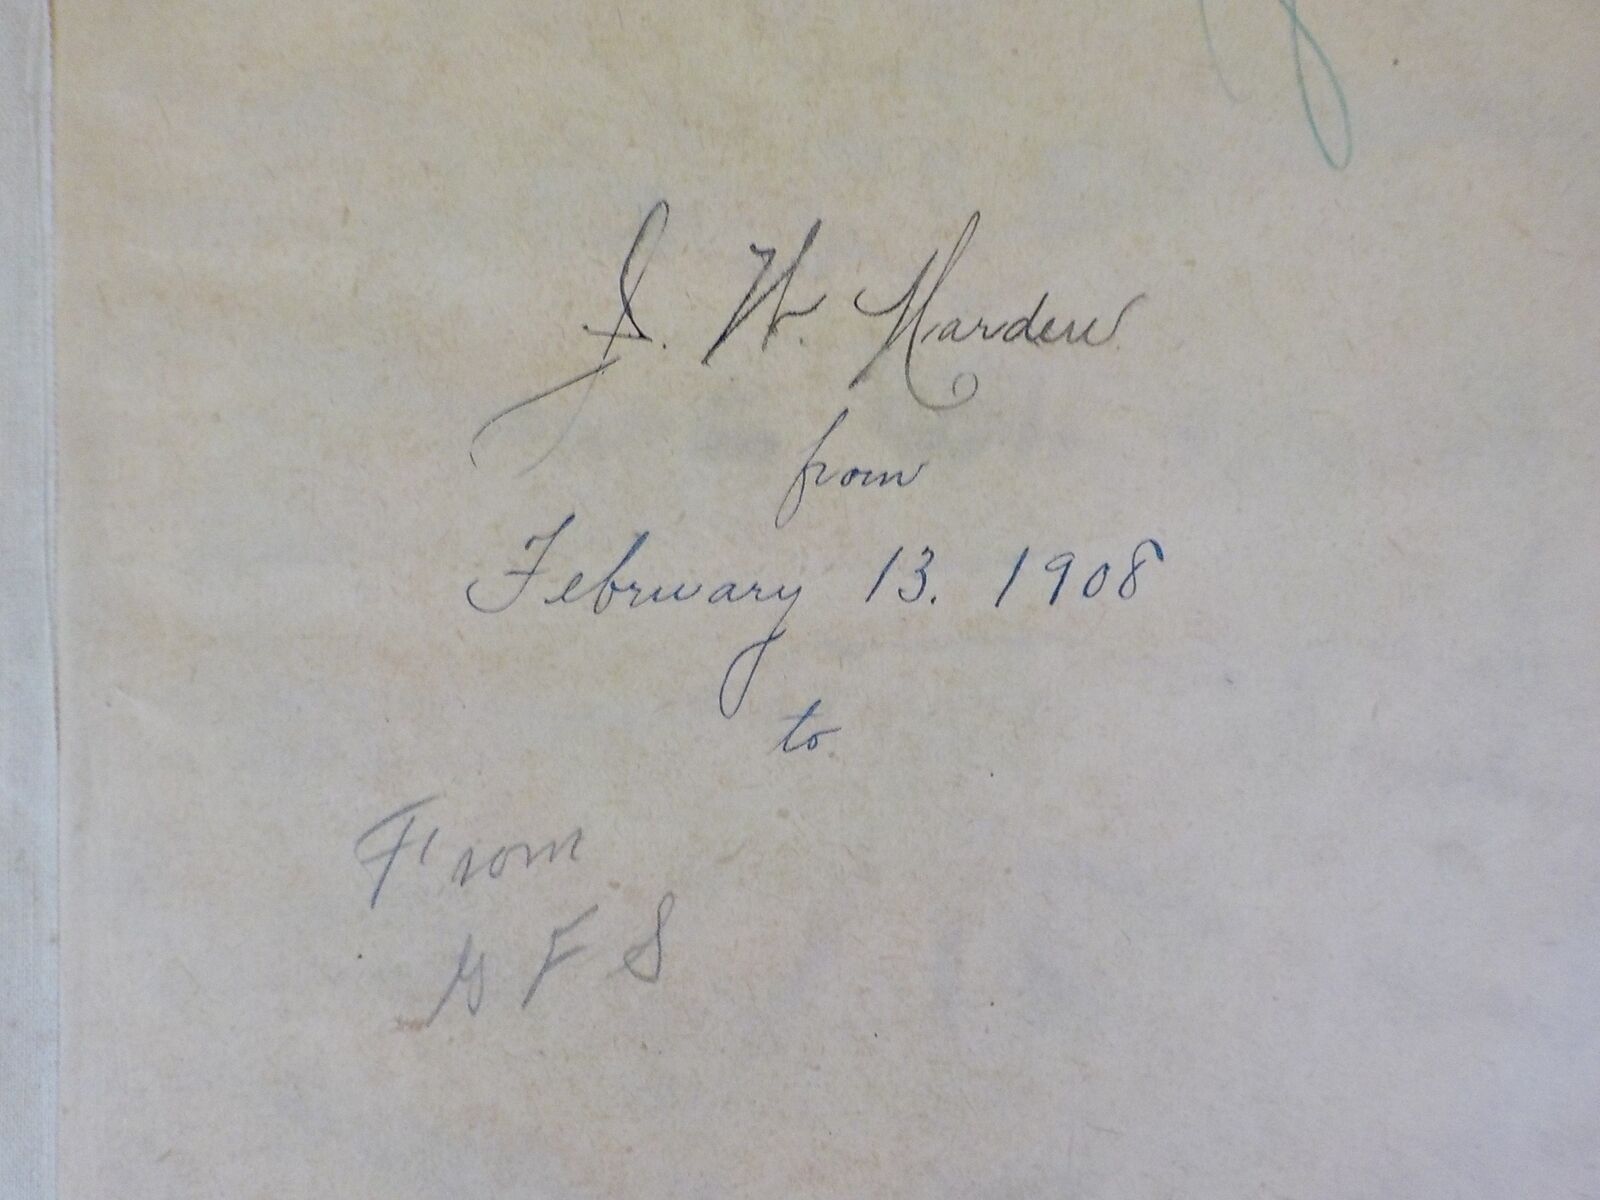 J. W. Harden
from
February 13. 1908
to
From
G F S